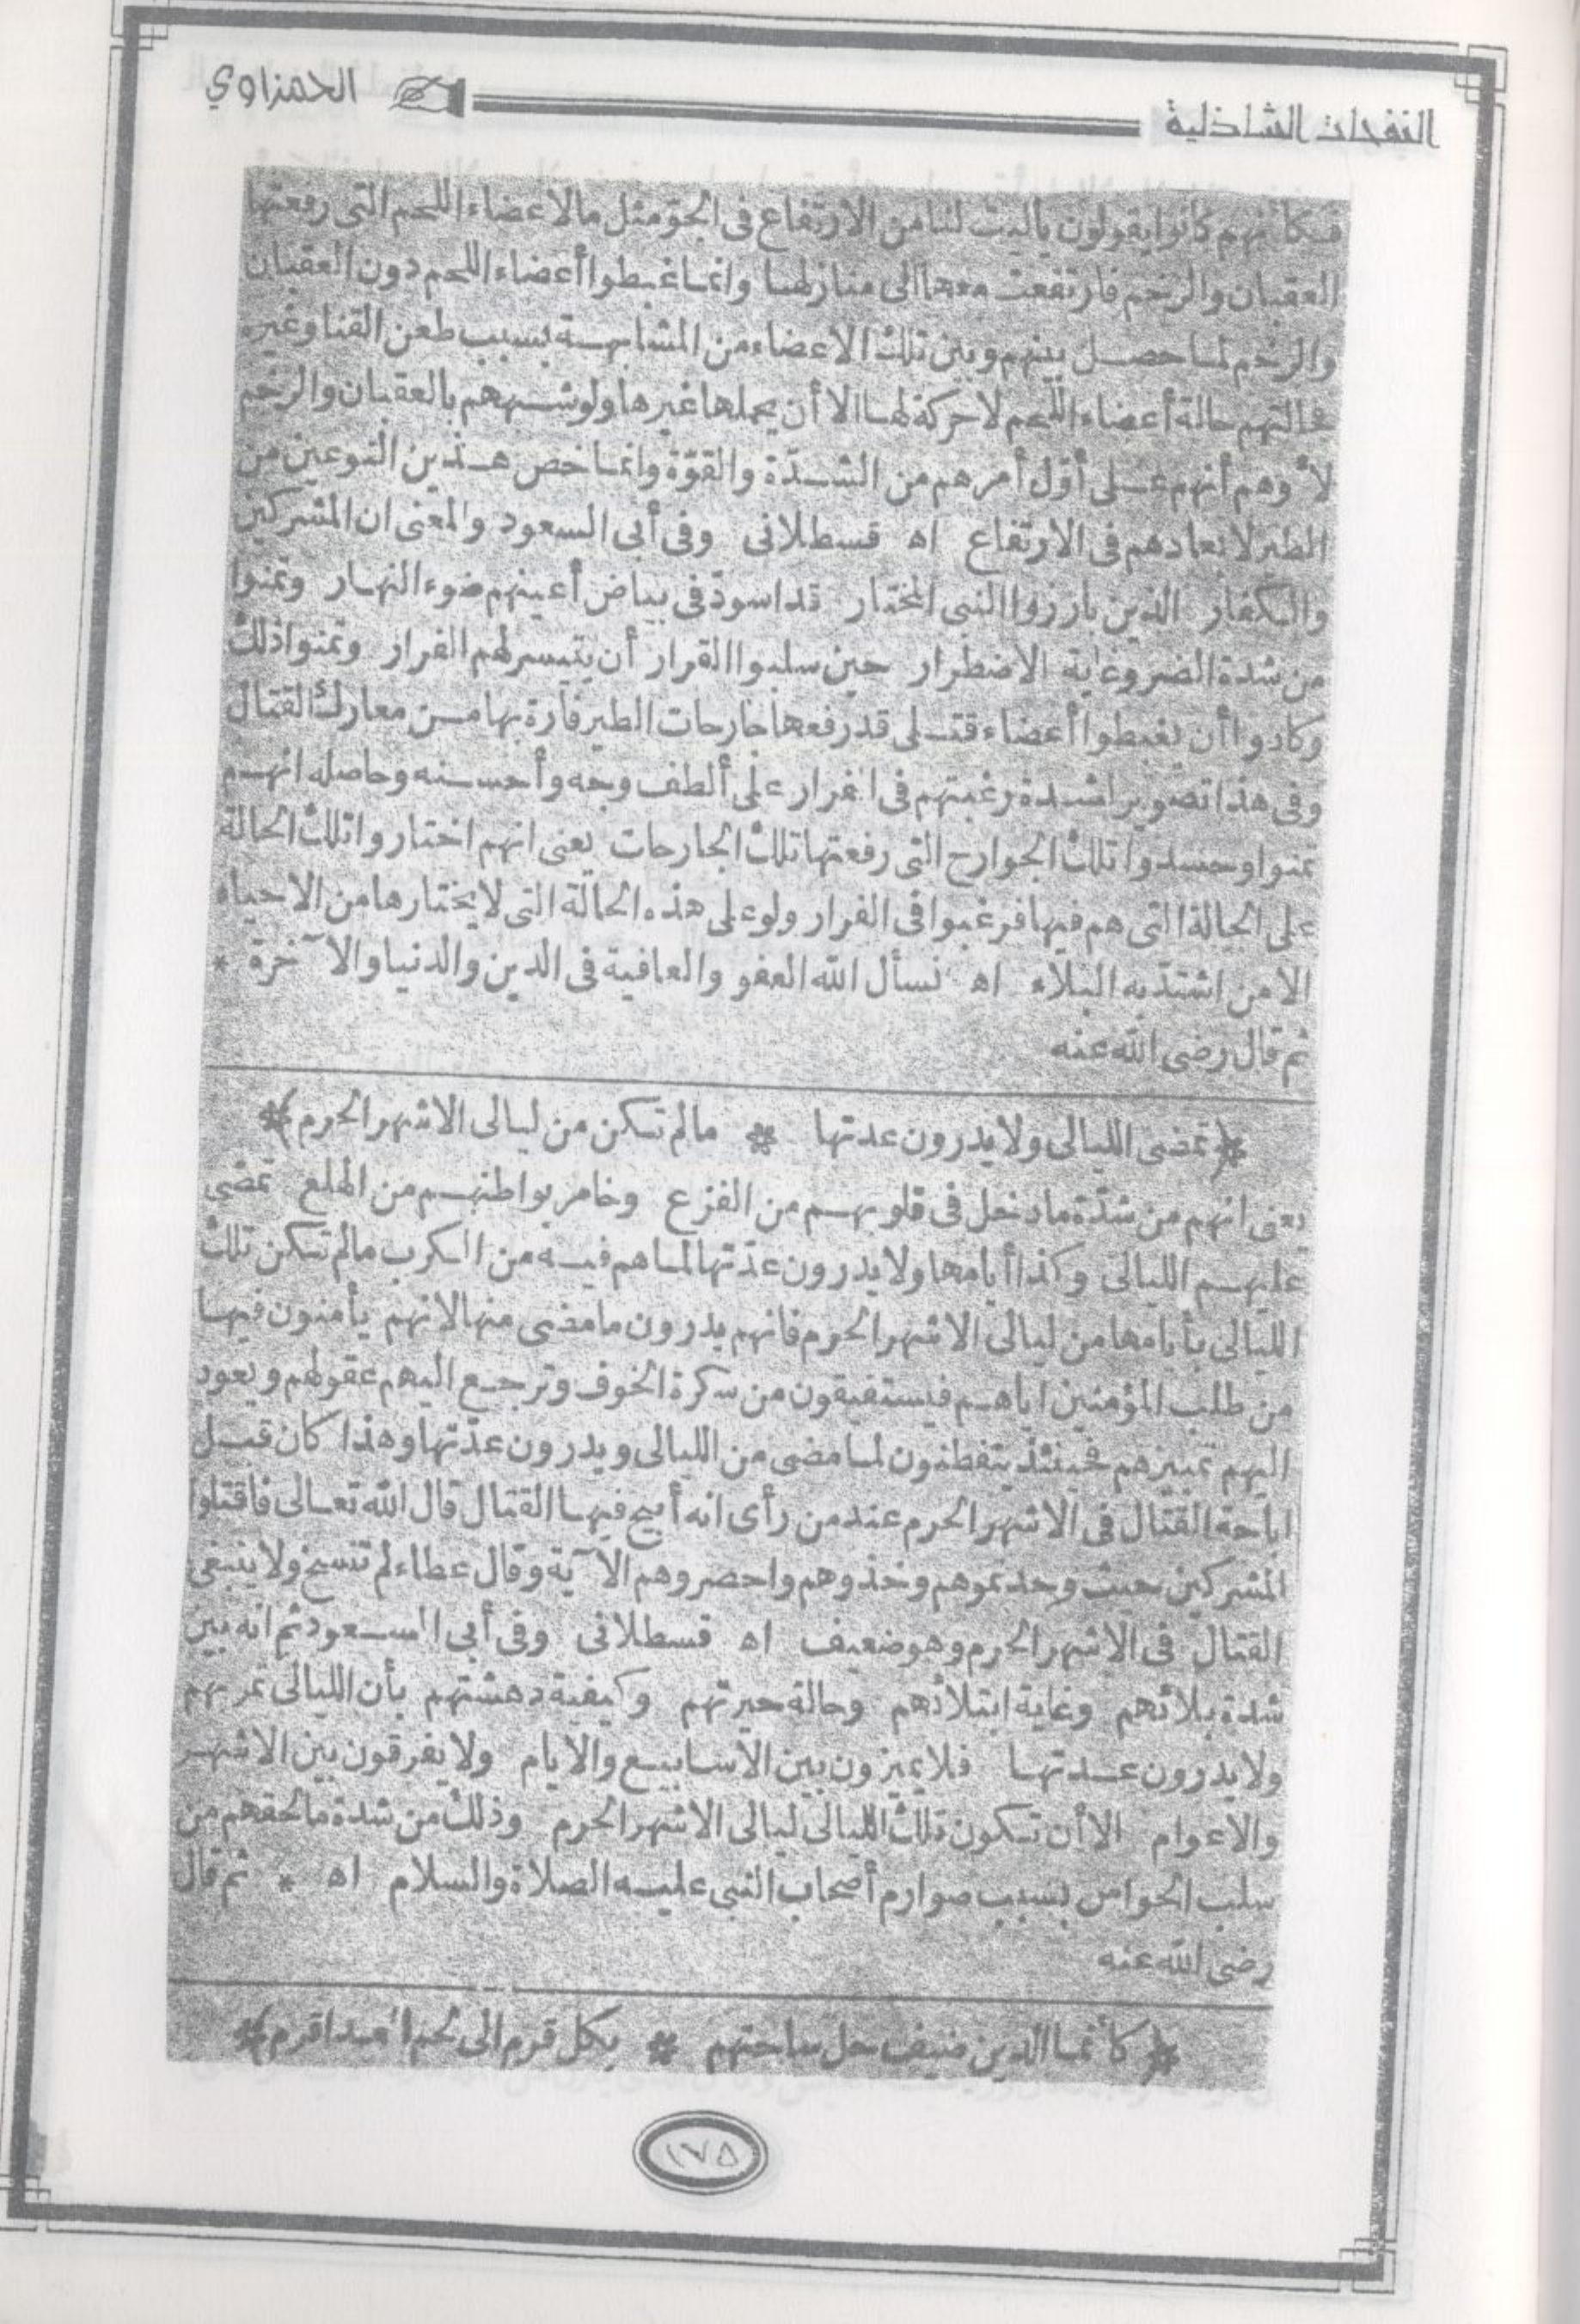 النفحات الشاذلية
الحمزاوي
فكأنهم كانوا يقولون ياليت لنا من الارتفاع في الجوّ مثل ما لاعضاء اللحم التى رفعتها
العقبان والرخم فارتفعت معها الى منازلها وانما غبطوا أعضاء اللحم دون العقبان
والرخم لما حصل بينهم وبين تلك الاعضاء من المشابهة بسبب طعن القنا وغيره
فحالتهم حالة أعضاء اللحم لا حركة لها الا أن يحملها غيرها ولو شبههم بالعقبان والرخم
لأوهم أنهم على أوّل أمرهم من الشدّة والقوّة وانما خص هذين النوعين من
الطير لابعادهم فى الارتفاع اه قسطلانى وفى أبى السعود والمعنى ان المشركين
والكفار الذين بارزوا النبى المختار قد اسودّ فى بياض أعينهم ضوء النهار وتمنوا
من شدة الضر وغاية الاضطرار حين سلبوا القرار أن يتيسر لهم الفرار وتمنوا ذلك
وكادوا أن يغبطوا أعضاء قتلى قد رفعها جارحات الطير فارة بها من معارك القتال
وفى هذا تصوير لشدة رغبتهم فى الفرار على ألطف وجه وأحسنه وحاصله انهم
تمنوا وحسدوا تلك الجوارح التى رفعتها تلك الجارحات يعنى انهم اختاروا تلك الحالة
على الحالة التى هم فيها فرغبوا فى الفرار ولو على هذه الحالة التى لا يختارها من الاحياء
الا من اشتدّ به البلاء اه نسأل الله العفو والعافية فى الدين والدنيا والآخرة *
ثم قال رضى الله عنه
﴿ تمضى الليالى ولا يدرون عدتها * مالم تكن من ليالى الاشهر الحرم ﴾
يعنى انهم من شدّة ما دخل فى قلوبهم من الفزع وخامر بواطنهم من الهلع تمضى
عليهم الليالى وكذا أيامها ولا يدرون عدّتها لما هم فيه من الكرب مالم تكن تلك
الليالى بأيامها من ليالى الاشهر الحرم فانهم يدرون ما مضى منها لانهم يأمنون فيها
من طلب المؤمنين اياهم فيستفيقون من سكرة الخوف وترجع اليهم عقولهم ويعود
اليهم تمييزهم فحينئذ يتفطنون لما مضى من الليالى ويدرون عدّتها وهذا كان قبل
اباحة القتال فى الاشهر الحرم عند من رأى انه أبيح فيها القتال قال الله تعالى فاقتلوا
المشركين حيث وجدتموهم وخذوهم واحصروهم الآية وقال عطاء لم تنسخ ولا ينبغى
القتال فى الاشهر الحرم وهو ضعيف اه قسطلانى وفى أبى السعود ثم انه بين
شدة بلائهم وغاية ابتلائهم وحالة حيرتهم وكيفية دهشتهم بأن الليالى تمر بهم
ولا يدرون عدتها فلا يميزون بين الأسابيع والايام ولا يفرقون بين الاشهر
والاعوام الا أن تكون تلك الليالى ليالى الاشهر الحرم وذلك من شدة ما لحقهم من
سلب الحواس بسبب صوارم أصحاب النبى عليه الصلاة والسلام اه * ثم قال
رضى الله عنه
﴿ كأنما الدين ضيف حل ساحتهم * بكل قرم الى لحم العدا قرم ﴾
١٧٥